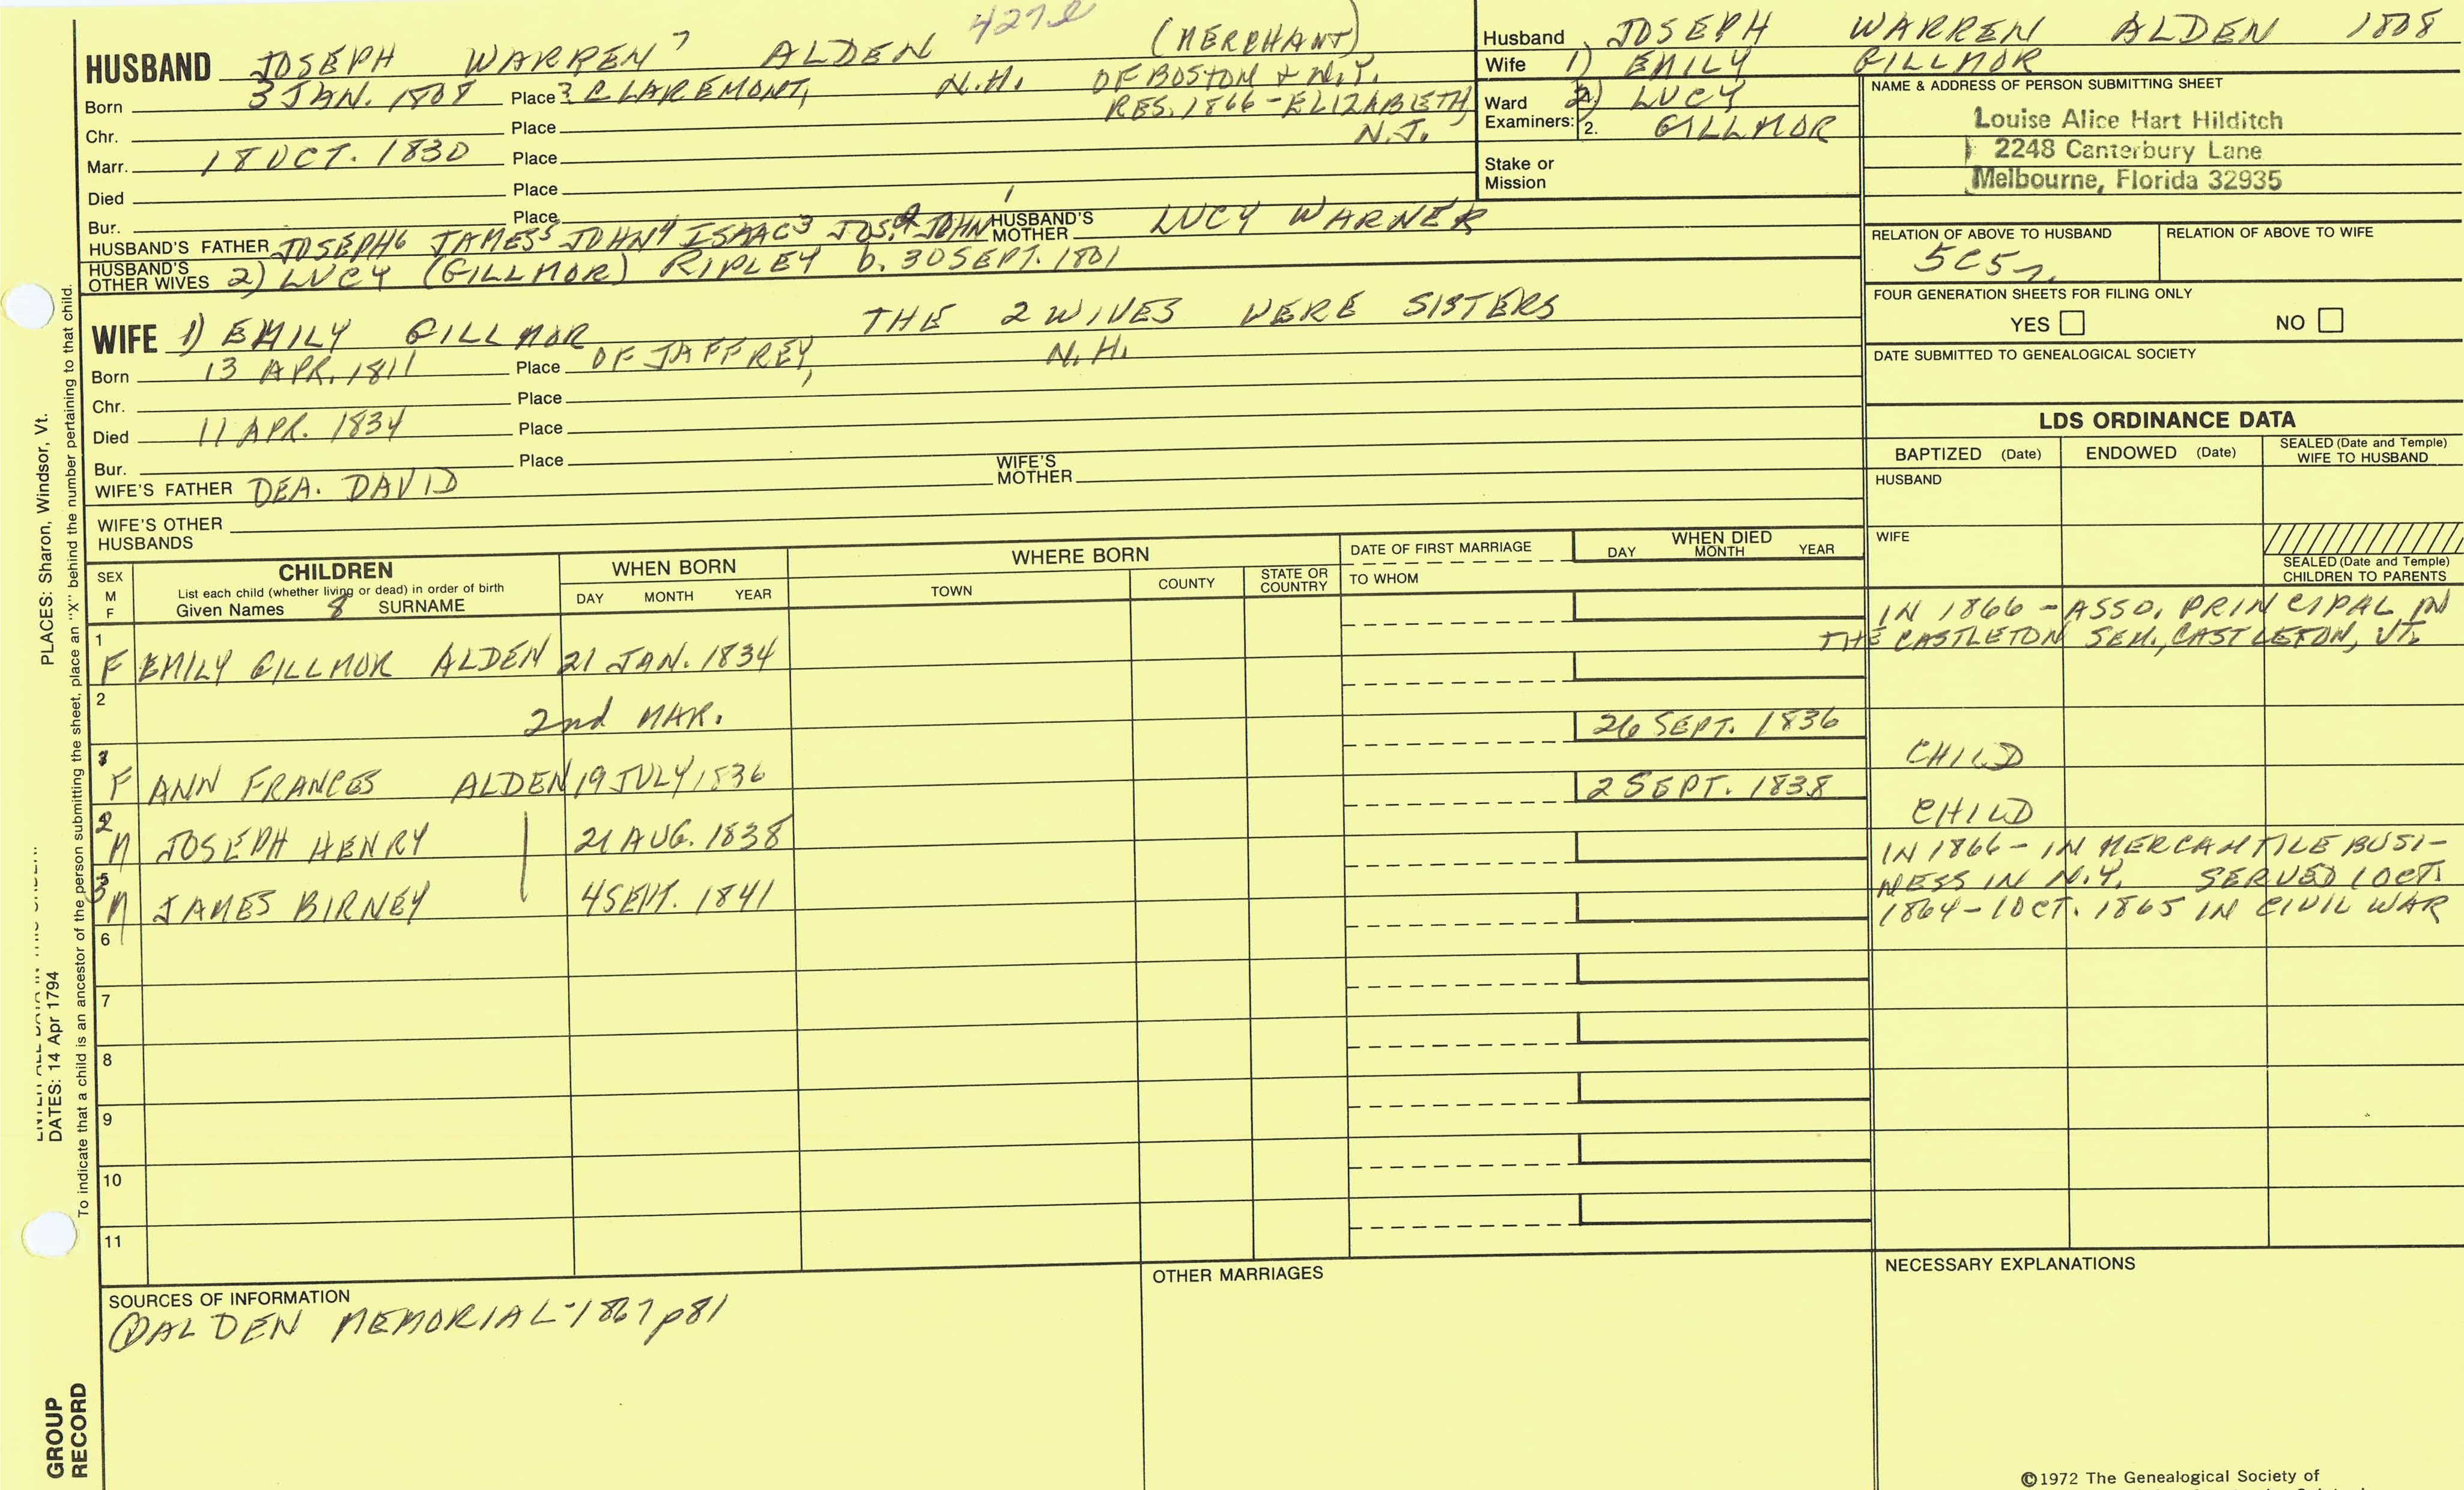 427
HUSBAND JOSEPH WARREN 7 ALDEN (MERCHANT)
Born 3 JAN. 1808 Place ? CLAREMONT, N.H. OF BOSTON & N.Y.
RES. 1866 - ELIZABETH, N.J.
Chr. Place
Marr. 18 OCT. 1830 Place
Died Place
Bur. Place
HUSBAND'S FATHER JOSEPH6 JAMES5 JOHN4 ISAAC3 JOS.2 JOHN1 HUSBAND'S MOTHER LUCY WARNER
HUSBAND'S OTHER WIVES 2) LUCY (GILLMOR) RIPLEY b. 30 SEPT. 1801
WIFE 1) EMILY GILLMOR THE 2 WIVES WERE SISTERS
Born 13 APR. 1811 Place OF JAFFREY, N.H.
Chr. Place
Died 11 APR. 1834 Place
Bur. Place
WIFE'S FATHER DEA. DAVID WIFE'S MOTHER
WIFE'S OTHER HUSBANDS
Husband JOSEPH WARREN ALDEN 1808
Wife 1) EMILY GILLMOR
Ward 2) LUCY
Examiners: 2. GILLMOR
Stake or Mission
NAME & ADDRESS OF PERSON SUBMITTING SHEET
Louise Alice Hart Hilditch
2248 Canterbury Lane
Melbourne, Florida 32935
RELATION OF ABOVE TO HUSBAND RELATION OF ABOVE TO WIFE
5C5r.
FOUR GENERATION SHEETS FOR FILING ONLY
YES NO
DATE SUBMITTED TO GENEALOGICAL SOCIETY
LDS ORDINANCE DATA
BAPTIZED (Date) ENDOWED (Date) SEALED (Date and Temple) WIFE TO HUSBAND
HUSBAND
WIFE
SEALED (Date and Temple) CHILDREN TO PARENTS
SEX M F CHILDREN WHEN BORN WHERE BORN DATE OF FIRST MARRIAGE WHEN DIED
List each child (whether living or dead) in order of birth
Given Names 8 SURNAME DAY MONTH YEAR TOWN COUNTY STATE OR COUNTRY TO WHOM DAY MONTH YEAR
1 F EMILY GILLMOR ALDEN 21 JAN. 1834 IN 1866 - ASSO. PRINCIPAL IN
THE CASTLETON SEM., CASTLETON, VT.
2
2nd MAR.
F ANN FRANCES ALDEN 19 JULY 1836 26 SEPT. 1836 CHILD
2 M JOSEPH HENRY 21 AUG. 1838 2 SEPT. 1838 CHILD
3 M JAMES BIRNEY 4 SEPT. 1841 IN 1866 - IN MERCANTILE BUSI-
NESS IN N.Y. SERVED 1 OCT.
1864 - 1 OCT. 1865 IN CIVIL WAR
6
7
8
9
10
11
SOURCES OF INFORMATION
① ALDEN MEMORIAL - 1867 p81
OTHER MARRIAGES
NECESSARY EXPLANATIONS
©1972 The Genealogical Society of
PLACES: Sharon, Windsor, Vt.
DATES: 14 Apr 1794
To indicate that a child is an ancestor of the person submitting the sheet, place an "X" behind the number pertaining to that child.
GROUP
RECORD